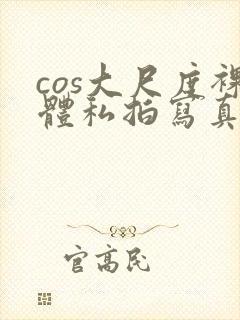 cos大尺度裸
體私拍寫真
官高民